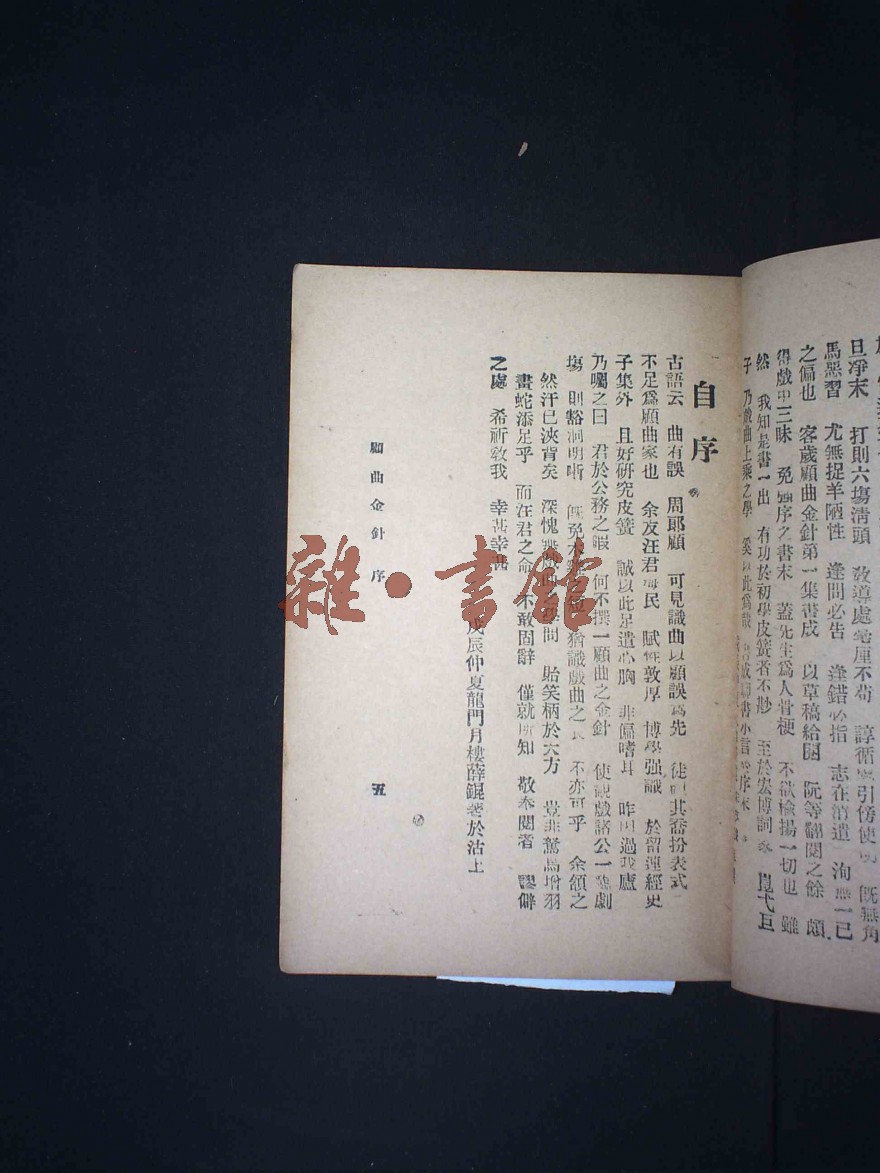 旦淨末　打則六塲淸頭　敎導處毫厘不苟　諄循引傍使　旣無角
馬惡習　尤無捉羊陋性　逢問必吿　逢錯必指　志在消遣　洵無一已
之偏也　客歲顧曲金針第一集書成　以草稿給閱　阮等翻閱之餘　頗
得戲中三昧　免強序之書末　蓋先生爲人骨梗　不欲揄揚一切也　雖
然　我知是書一出　有功於初學皮簧者不尠　至於宏博詞　豈弋巨
子　乃戲曲上乘之學　以此爲
自序
古語云　曲有誤　周郎顧　可見識曲以顧誤爲先　徒其喬扮表式
不足爲顧曲家也　余友汪君海民　賦性敦厚　博學强識　於習經史
子集外　且好硏究皮簧　誠以此足遣心胸　非偏嗜耳　昨過我廬
乃囑之曰　君於公務之暇　何不撰一顧曲之金針　使觀戲諸公一劇
塲　則豁洞明晰　旣免木雞之　猶識戲曲之　不亦可乎　余頷之
然汗已浹背矣　深愧無戲曲學問　貽笑柄於大方　豈非駑馬增羽
畫蛇添足乎　而汪君之命　不敢固辭　僅就所知　敬奉閱者　謬僻
之處　希祈敎我　幸甚幸甚
戊辰仲夏龍門月樓薛錕著於沽上
顧曲金針　序
五
雜・書館